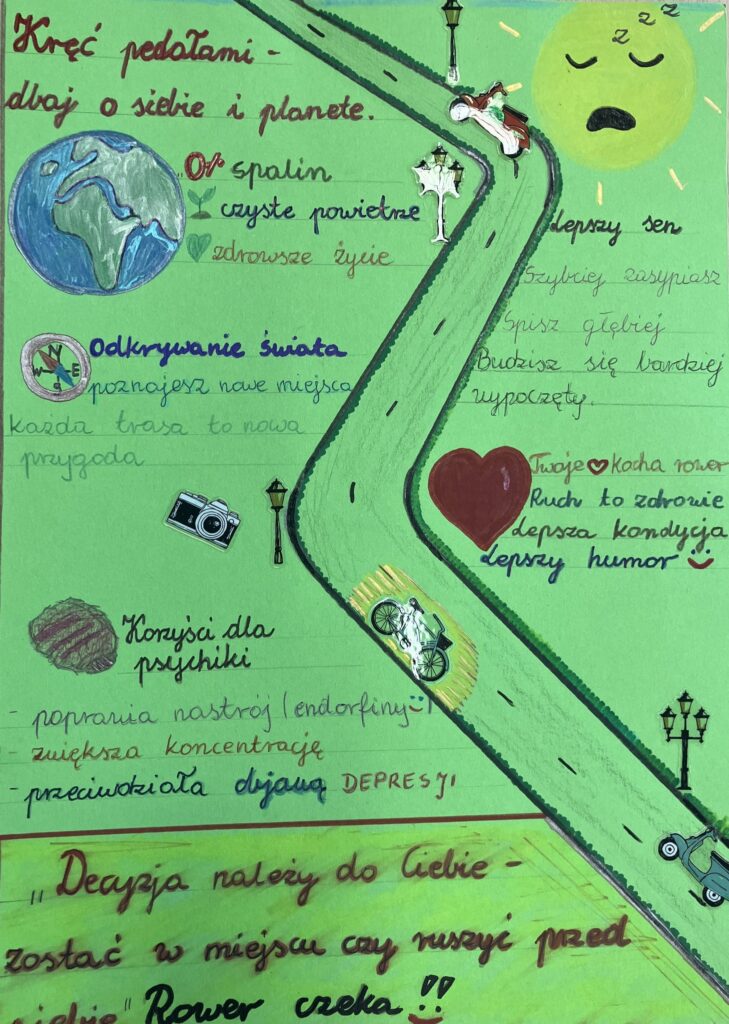 Kręć pedałami -
dbaj o siebie i planete.
"0% spalin
czyste powietrze
zdrowsze życie
N
W E
S
Odkrywanie świata
poznajesz nowe miejsca
każda trasa to nowa
przygoda
z z z
Lepszy sen
Szybciej zasypiasz
Spisz głębiej
Budzisz się bardziej
wypoczęty.
Twoje ♥ kocha rower
Ruch to zdrowie
Lepsza kondycja
Lepszy humor
Korzyści dla
psychiki
- poprawia nastrój (endorfiny)
- zwiększa koncentrację
- przeciwdziała objawą DEPRESJI
„Decyzja należy do Ciebie -
zostać w miejscu czy ruszyć przed
siebie" Rower czeka!!